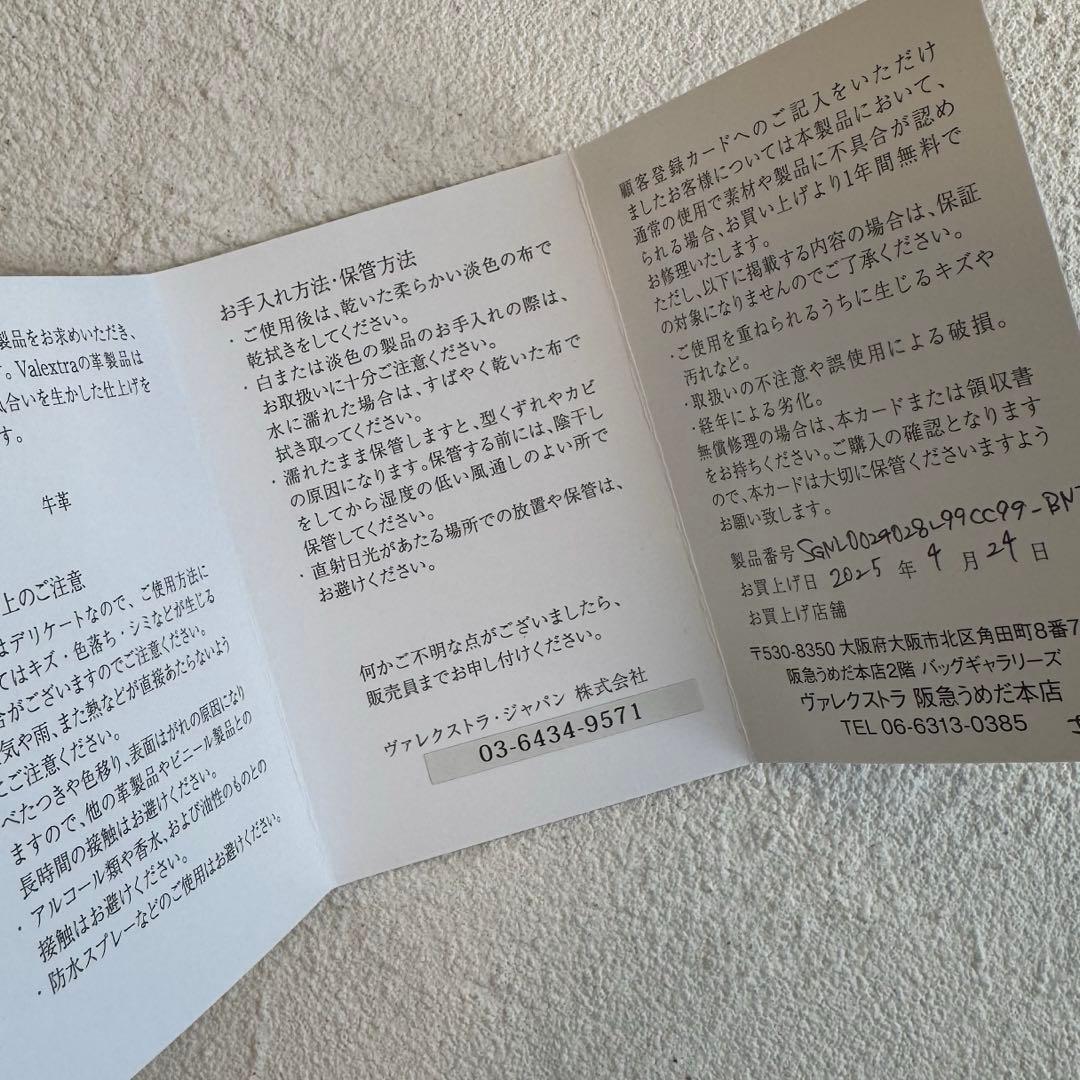 製品をお求めいただき、
す。Valextraの革製品は
合いを生かした仕上げを
す。
牛革
上のご注意
はデリケートなので、ご使用方法に
てはキズ・色落ち・シミなどが生じる
合がございますのでご注意ください。
気や雨、また熱などが直接あたらないよう
ご注意ください。
べたつきや色移り、表面はがれの原因になり
ますので、他の革製品やビニール製品との
長時間の接触はお避けください。
・アルコール類や香水、および油性のものとの
接触はお避けください。
・防水スプレーなどのご使用はお避けください。
お手入れ方法・保管方法
・ご使用後は、乾いた柔らかい淡色の布で
乾拭きをしてください。
・白または淡色の製品のお手入れの際は、
お取扱いに十分ご注意ください。
水に濡れた場合は、すばやく乾いた布で
拭き取ってください。
・濡れたまま保管しますと、型くずれやカビ
の原因になります。保管する前には、陰干し
をしてから湿度の低い風通しのよい所で
保管してください。
・直射日光があたる場所での放置や保管は、
お避けください。
何かご不明な点がございましたら、
販売員までお申し付けください。
ヴァレクストラ・ジャパン 株式会社
03-6434-9571
顧客登録カードへのご記入をいただけ
ましたお客様については本製品において、
通常の使用で素材や製品に不具合が認め
られる場合、お買い上げより1年間無料で
お修理いたします。
ただし、以下に掲載する内容の場合は、保証
の対象になりませんのでご了承ください。
・ご使用を重ねられるうちに生じるキズや
汚れなど。
・取扱いの不注意や誤使用による破損。
・経年による劣化。
無償修理の場合は、本カードまたは領収書
をお持ちください。ご購入の確認となります
ので、本カードは大切に保管くださいますよう
お願い致します。
製品番号 SGNL0024028L99CC99-BN
お買上げ日 2025 年 4 月 24 日
お買上げ店舗
〒530-8350 大阪府大阪市北区角田町8番7
阪急うめだ本店2階 バッグギャラリーズ
ヴァレクストラ 阪急うめだ本店
TEL 06-6313-0385